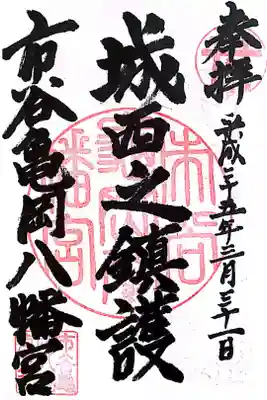 奉拝
平成二十五年三月三十一日
城西之鎮護
市谷亀岡八幡宮